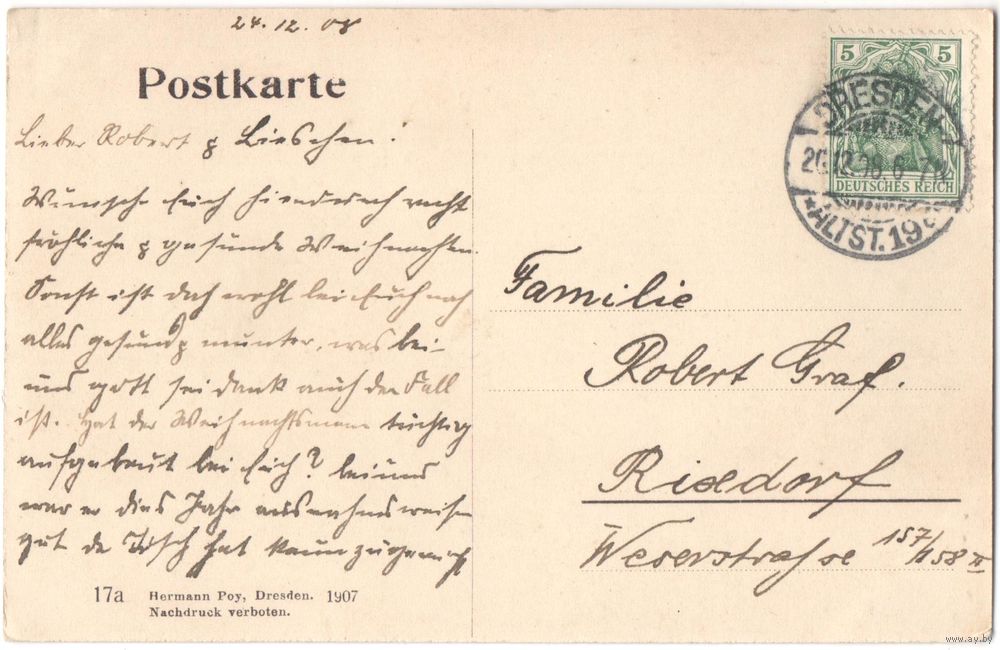 24.12.08
Postkarte
Lieber Robert & Lieschen!
Wünsche Euch hierdurch recht
fröhliche & gesunde Weihnachten.
Sonst ist doch wohl bei Euch noch
alles gesund & munter, was bei
uns gott sei dank auch der Fall
ist. Hat der Weihnachtsmann tüchtig
aufgebaut bei Euch? bei uns
war er dies Jahr ausnahmsweise
gut de Tisch hat kaum zugereicht
17a Hermann Poy, Dresden. 1907
Nachdruck verboten.
5 5
DEUTSCHES REICH
DRESDEN
12.08.6-7N
*ALTST.19
Familie
Robert Graf.
Rixdorf
Weserstrasse 157/158 II
www.ay.by